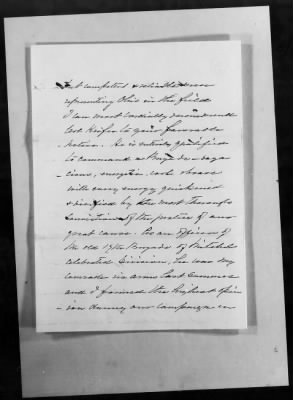 but competent & reliable men
representing Ohio in the field
I am most cordially
Col Keifer to your favorable
notice. He is entirely qualified
to command a Brigade - saga
cious, energetic, cool & brave
with every energy quickened
& directed by the most thorough
convictions of the justice of our
great cause. As an officer of
the old 17th Brigade of Mitchel
celebrated Division, he was my
comrade in arms last Summer
and I formed the highest opin
ion during our campaign in